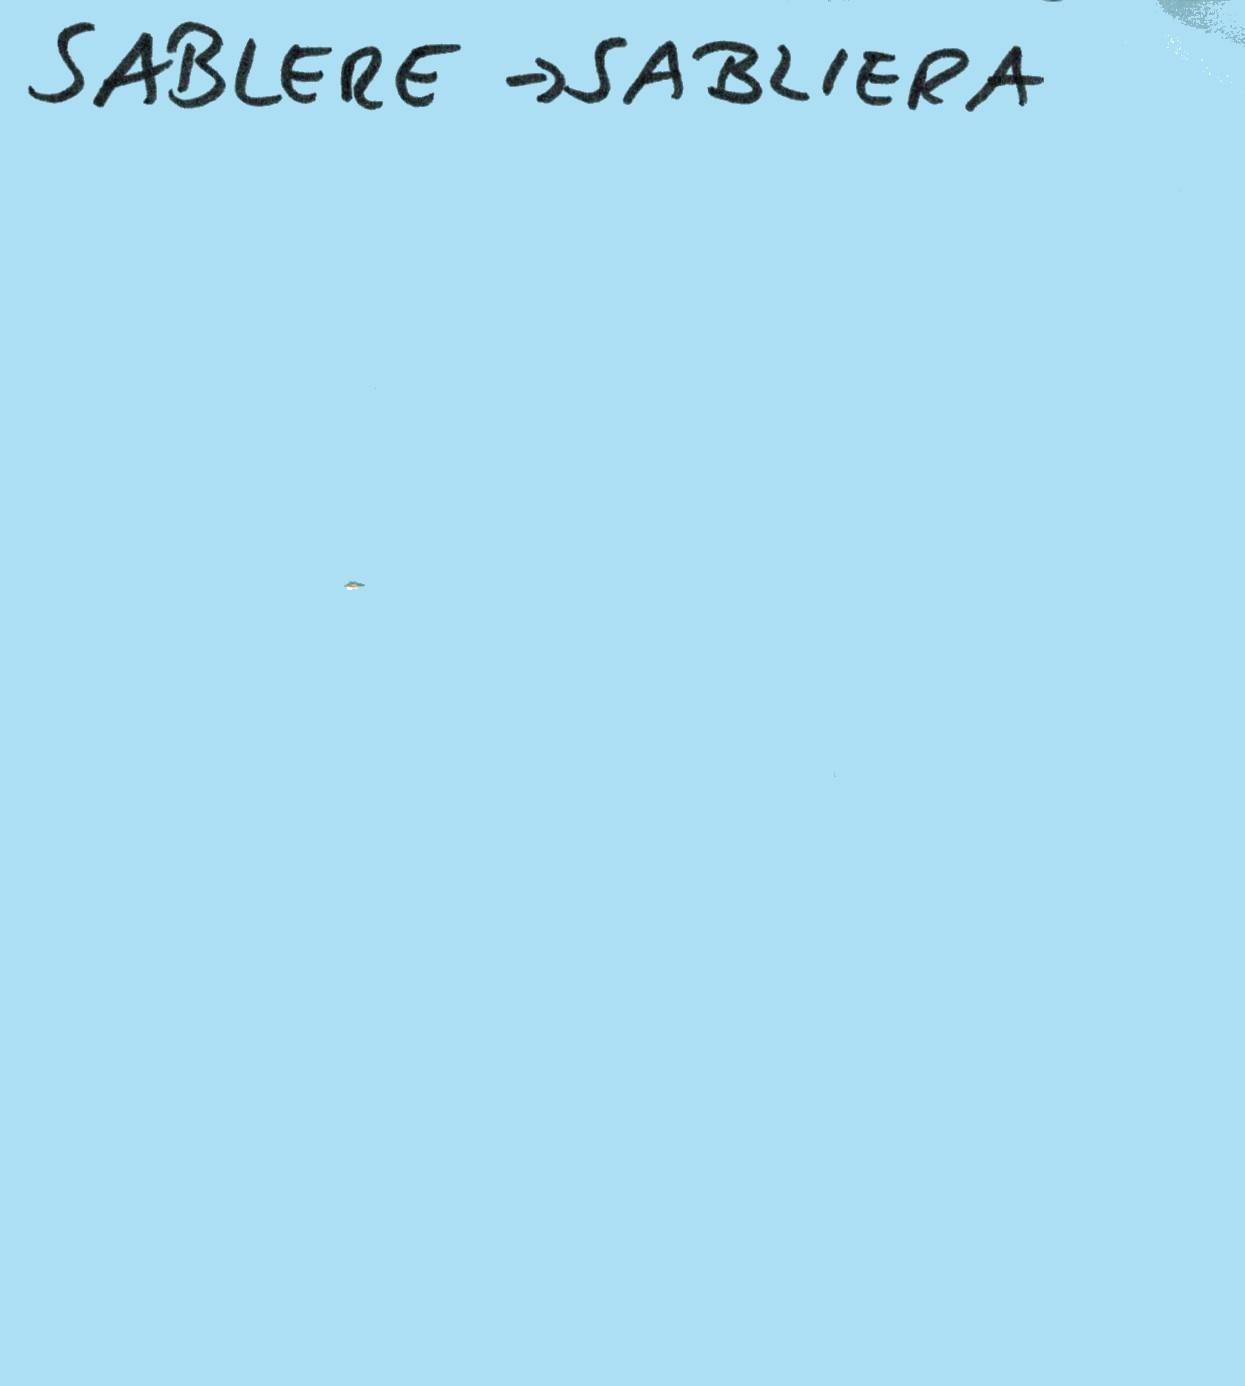 SABLERE → SABLIERA